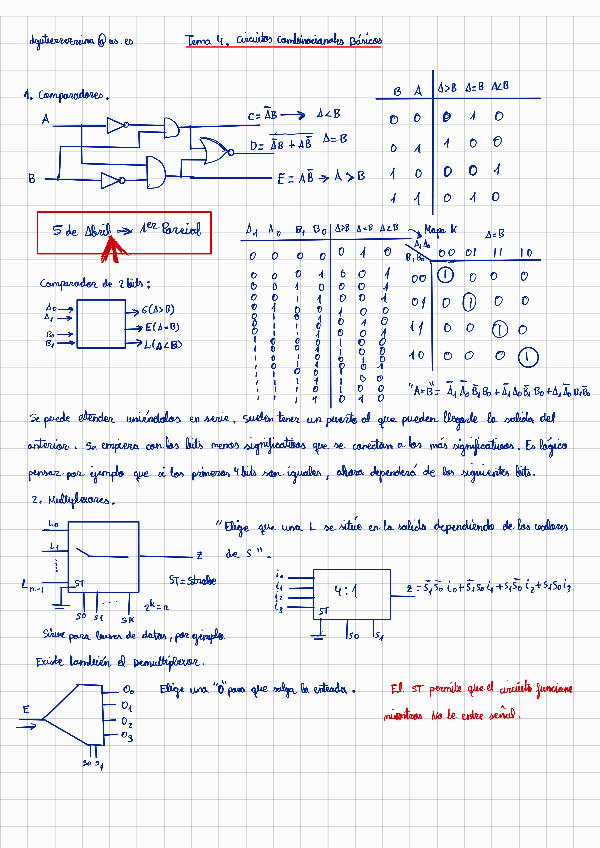 dgutierrezreina@us.es
Tema 4. Circuitos Combinacionales Básicos
1. Comparadores.
A
B
C = A̅B → A<B
D = \overline{A̅B + AB̅} A=B
E = AB̅ → A>B
B A A>B A=B A<B
0 0 0 1 0
0 1 1 0 0
1 0 0 0 1
1 1 0 1 0
5 de Abril → 1er Parcial
Comparador de 2 bits:
A0
A1
B0
B1
G(A>B)
E(A=B)
L(A<B)
A1 A0 B1 B0 A>B A=B A<B
0 0 0 0 0 1 0
0 0 0 1 0 0 1
0 0 1 0 0 0 1
0 0 1 1 0 0 1
Mapa K
A=B
A1A0
B1B0
00 01 11 10
00 1 0 0 0
01 0 1 0 0
11 0 0 1 0
10 0 0 0 1
Se puede extender uniéndolos en serie, suelen tener un puerto al que pueden llegarle la salida del
anterior. Se empieza con los bits menos significativos que se conectan a los más significativos. Es lógico
pensar por ejemplo que si los primeros 4 bits son iguales, ahora dependerá de los siguientes bits.
2. Multiplexores.
L0
L1
Ln-1
ST
S0 S1 ... SK
Z
ST = Strobe
2^k = n
"Elige que una L se sitúe en la salida dependiendo de los valores
de S".
i0
i1
i2
i3
4:1
ST
S0 S1
Z = S̅1S̅0 i0 + S̅1S0 i1 + S1S̅0 i2 + S1S0 i3
Sirve para buses de datos, por ejemplo.
Existe también el demultiplexor.
E
O0
O1
O2
O3
S0 S1
Elige una "O" para que salga la entrada.
El ST permite que el circuito funcione
mientras No le entre señal.